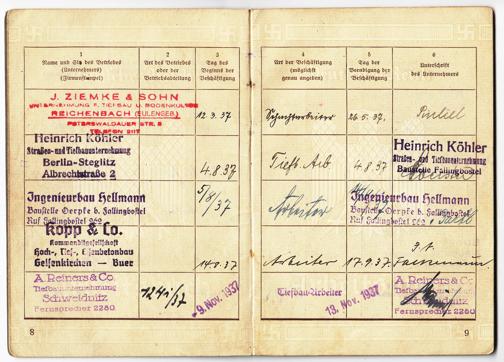 1
Name und Sitz des Betriebes
(Unternehmers)
(Firmenstempel)
2
Art des Betriebes
oder der
Betriebsabteilung
3
Tag des
Beginns der
Beschäftigung
J. ZIEMKE & SOHN
UNTERNEHMUNG F. TIEFBAU U. BODENKULTUR
REICHENBACH (EULENGEB.)
PETERSWALDAUER STR. 8
TELEFON 2117
12.3.37
Heinrich Köhler
Straßen- und Tiefbauunternehmung
Berlin-Steglitz
Albrechtstraße 2
4.8.37
Ingenieurbau Hellmann
Baustelle Oerpke b. Fallingbostel
Ruf Fallingbostel 262
5/8/37
Kopp & Co.
Kommanditgesellschaft
Hoch-, Tief-, Eisenbetonbau
Gelsenkirchen — Buer
14.9.37
A. Reiners & Co.
Tiefbauunternehmung
Schweidnitz
Fernsprecher 2280
-9. Nov. 1937
8
4
Art der Beschäftigung
(möglichst
genau angeben)
5
Tag der
Beendigung der
Beschäftigung
6
Unterschrift
des Unternehmers
Schachtarbeiter
26.5.37.
Tiefb. Arb
4.8.37
Heinrich Köhler
Straßen- und Tiefbauunternehmung
Baustelle Fallingbostel
Arbeiter
Ingenieurbau Hellmann
Baustelle Oerpke b. Fallingbostel
Ruf Fallingbostel 262
Arbeiter
17.9.37
Tiefbau-Arbeiter
13. Nov. 1937
A. Reiners & Co.
Tiefbauunternehmung
Schweidnitz
Fernsprecher 2280
9